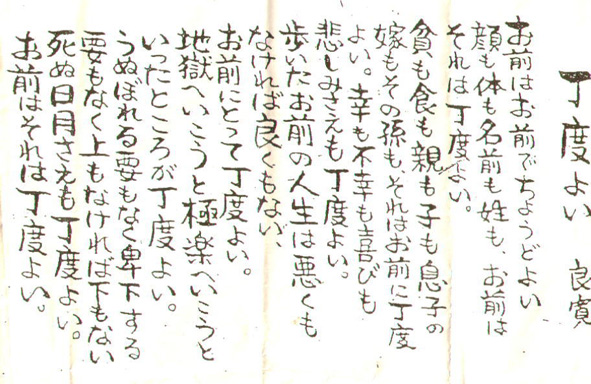 丁度よい 良寛
お前はお前でちようどよい
顔も体も名前も姓も、お前は
それは丁度よい。
貧も食も親も子も息子の
嫁もその孫も、それはお前に丁度
よい。幸も不幸も喜びも
悲しみさえも丁度よい。
歩いたお前の人生は悪くも
なければ良くもない、
お前にとって丁度よい。
地獄へいこうと極楽へいこうと
いったところが丁度よい。
うぬぼれる要もなく卑下する
要もなく上もなければ下もない
死ぬ日月さえも丁度よい。
お前はそれは丁度よい。